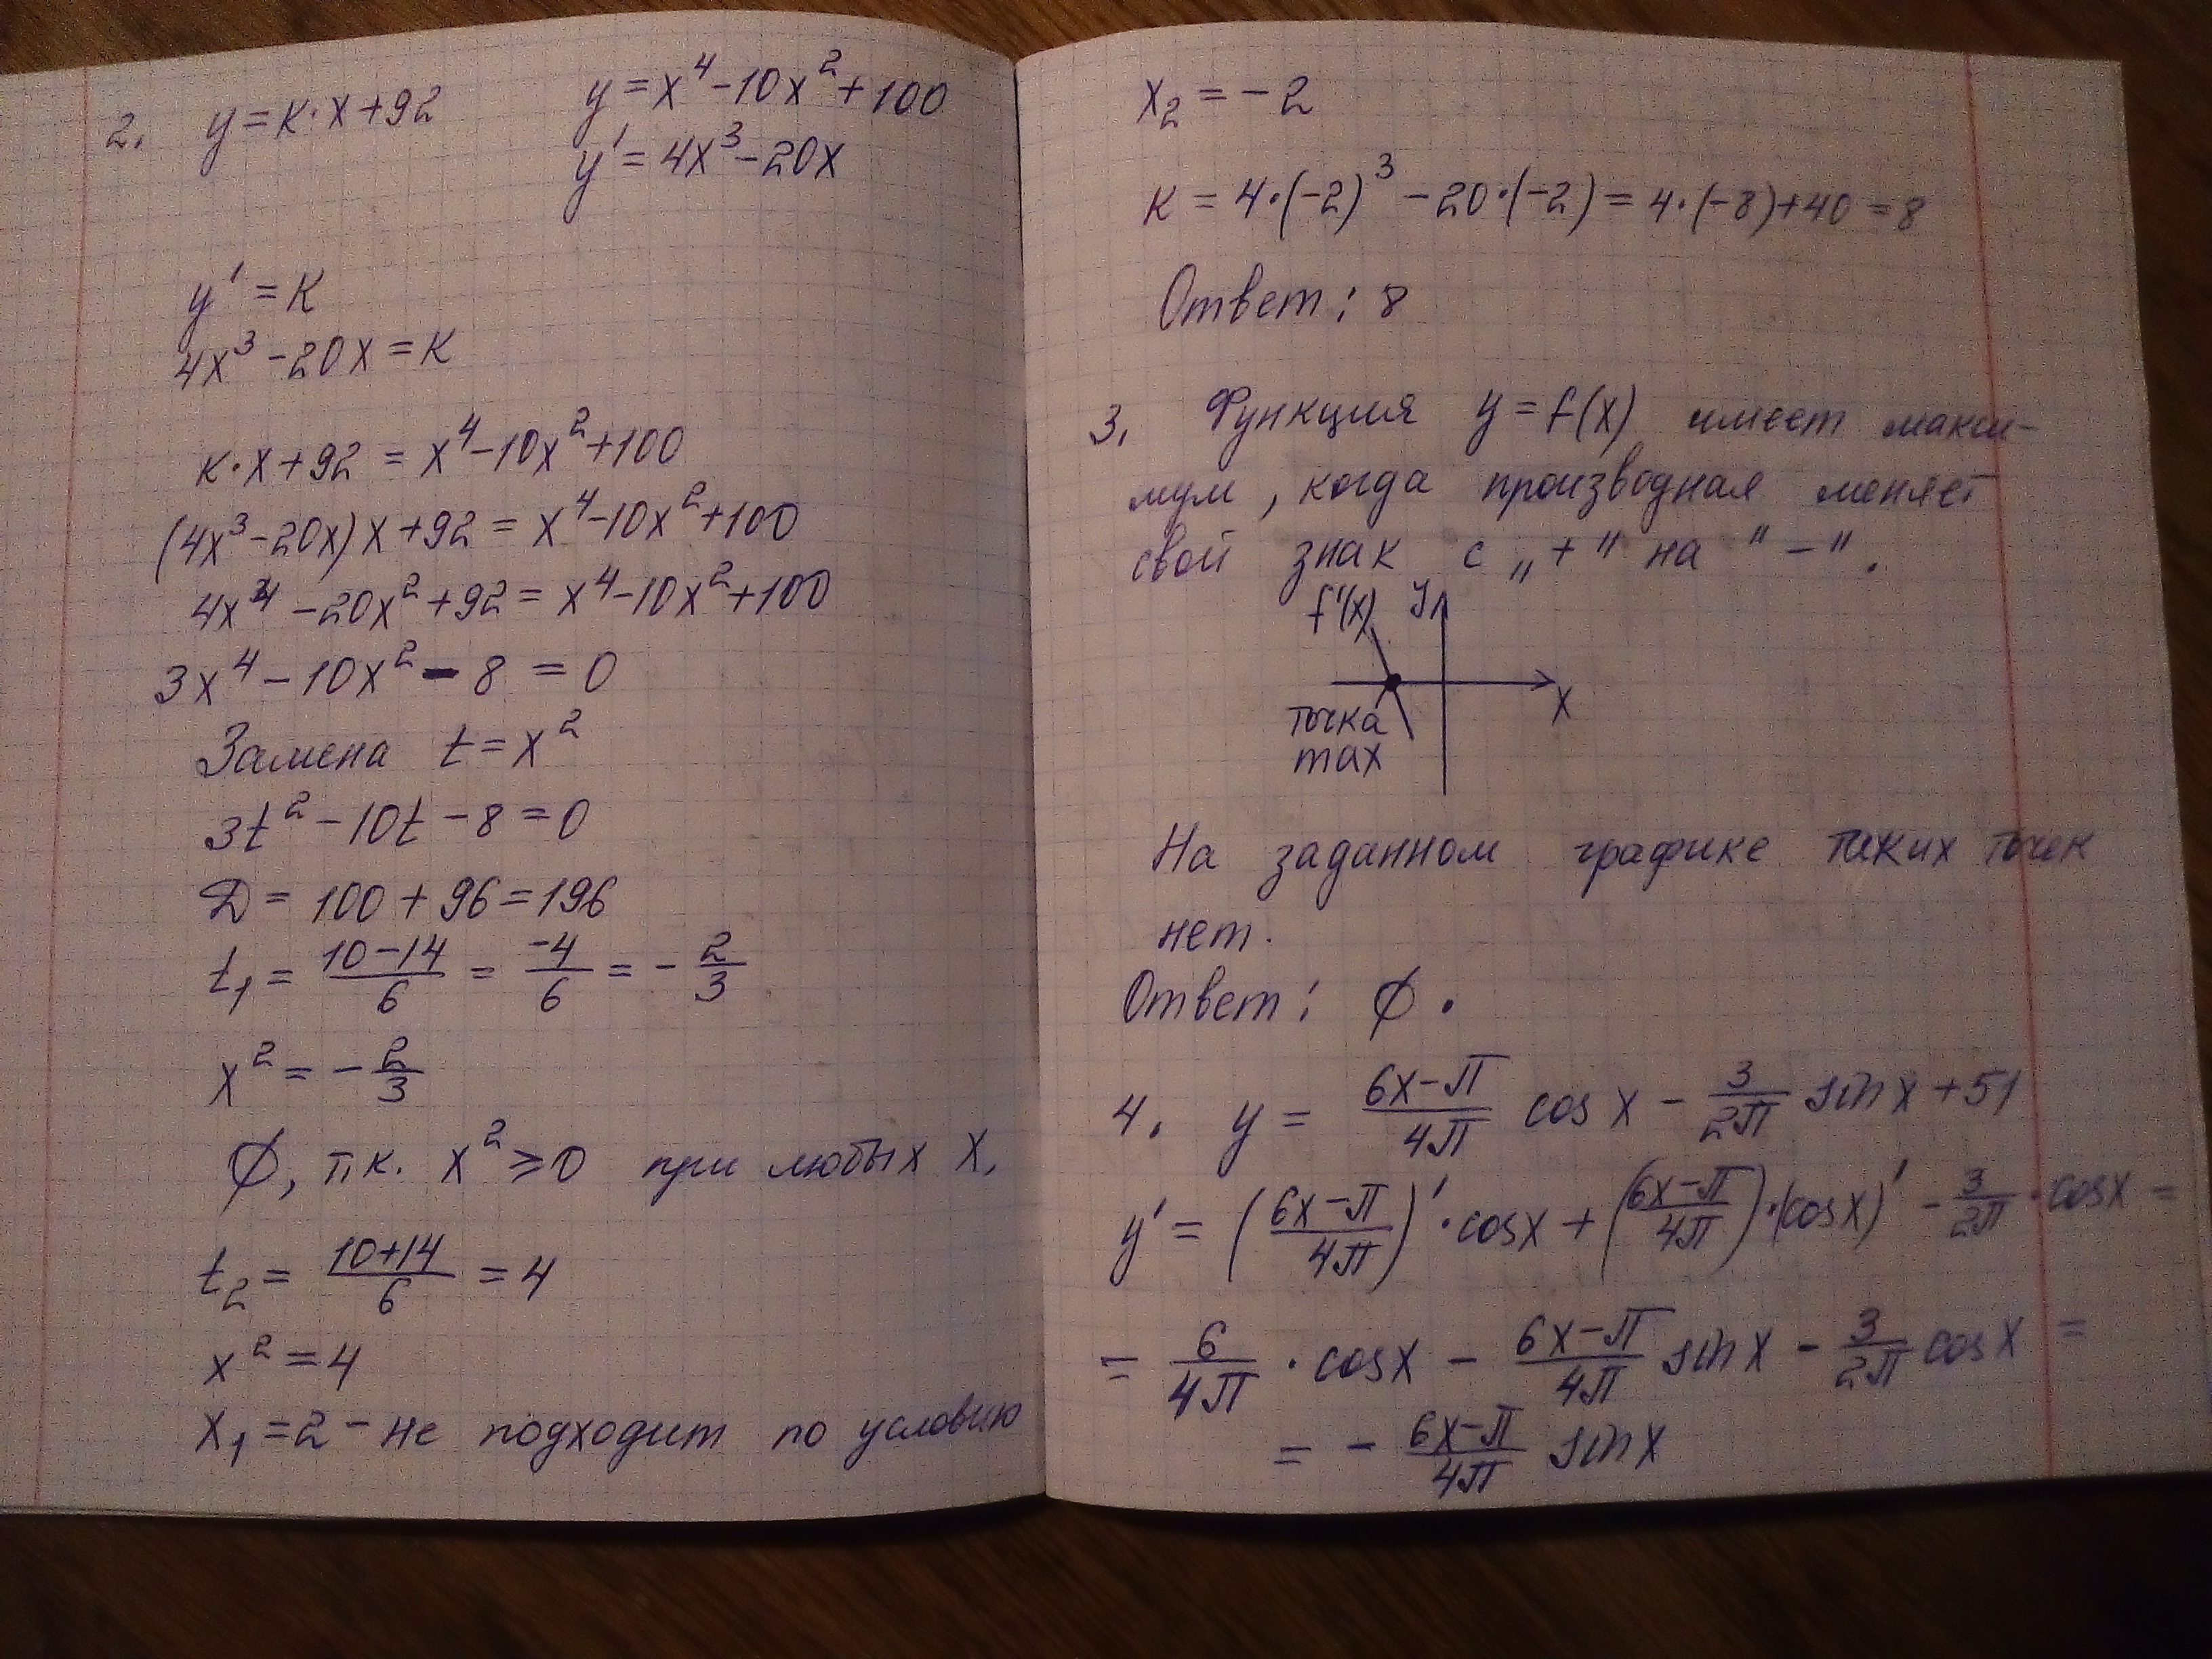 2. y = к·x+92 y = x⁴-10x²+100
y' = 4x³-20x
y' = к
4x³-20x = к
к·x+92 = x⁴-10x²+100
(4x³-20x)x+92 = x⁴-10x²+100
4x⁴-20x²+92 = x⁴-10x²+100
3x⁴-10x²-8 = 0
Замена t = x²
3t²-10t-8 = 0
D = 100+96 = 196
t₁ = (10-14)/6 = -4/6 = -2/3
x² = -2/3
∅, т.к. x² ≥ 0 при любых x.
t₂ = (10+14)/6 = 4
x² = 4
x₁ = 2 - не подходит по условию
x₂ = -2
к = 4·(-2)³-20·(-2) = 4·(-8)+40 = 8
Ответ: 8
3. Функция y = f(x) имеет макси-
мум, когда производная меняет
свой знак с „+" на "-".
f'(x) y
x
точка
max
На заданном графике таких точек
нет.
Ответ: ∅.
4. y = (6x-π)/4π cos x - 3/2π sin x + 51
y' = ((6x-π)/4π)'·cos x + ((6x-π)/4π)·(cos x)' - 3/2π·cos x =
= 6/4π · cos x - (6x-π)/4π sin x - 3/2π cos x =
= - (6x-π)/4π sin x